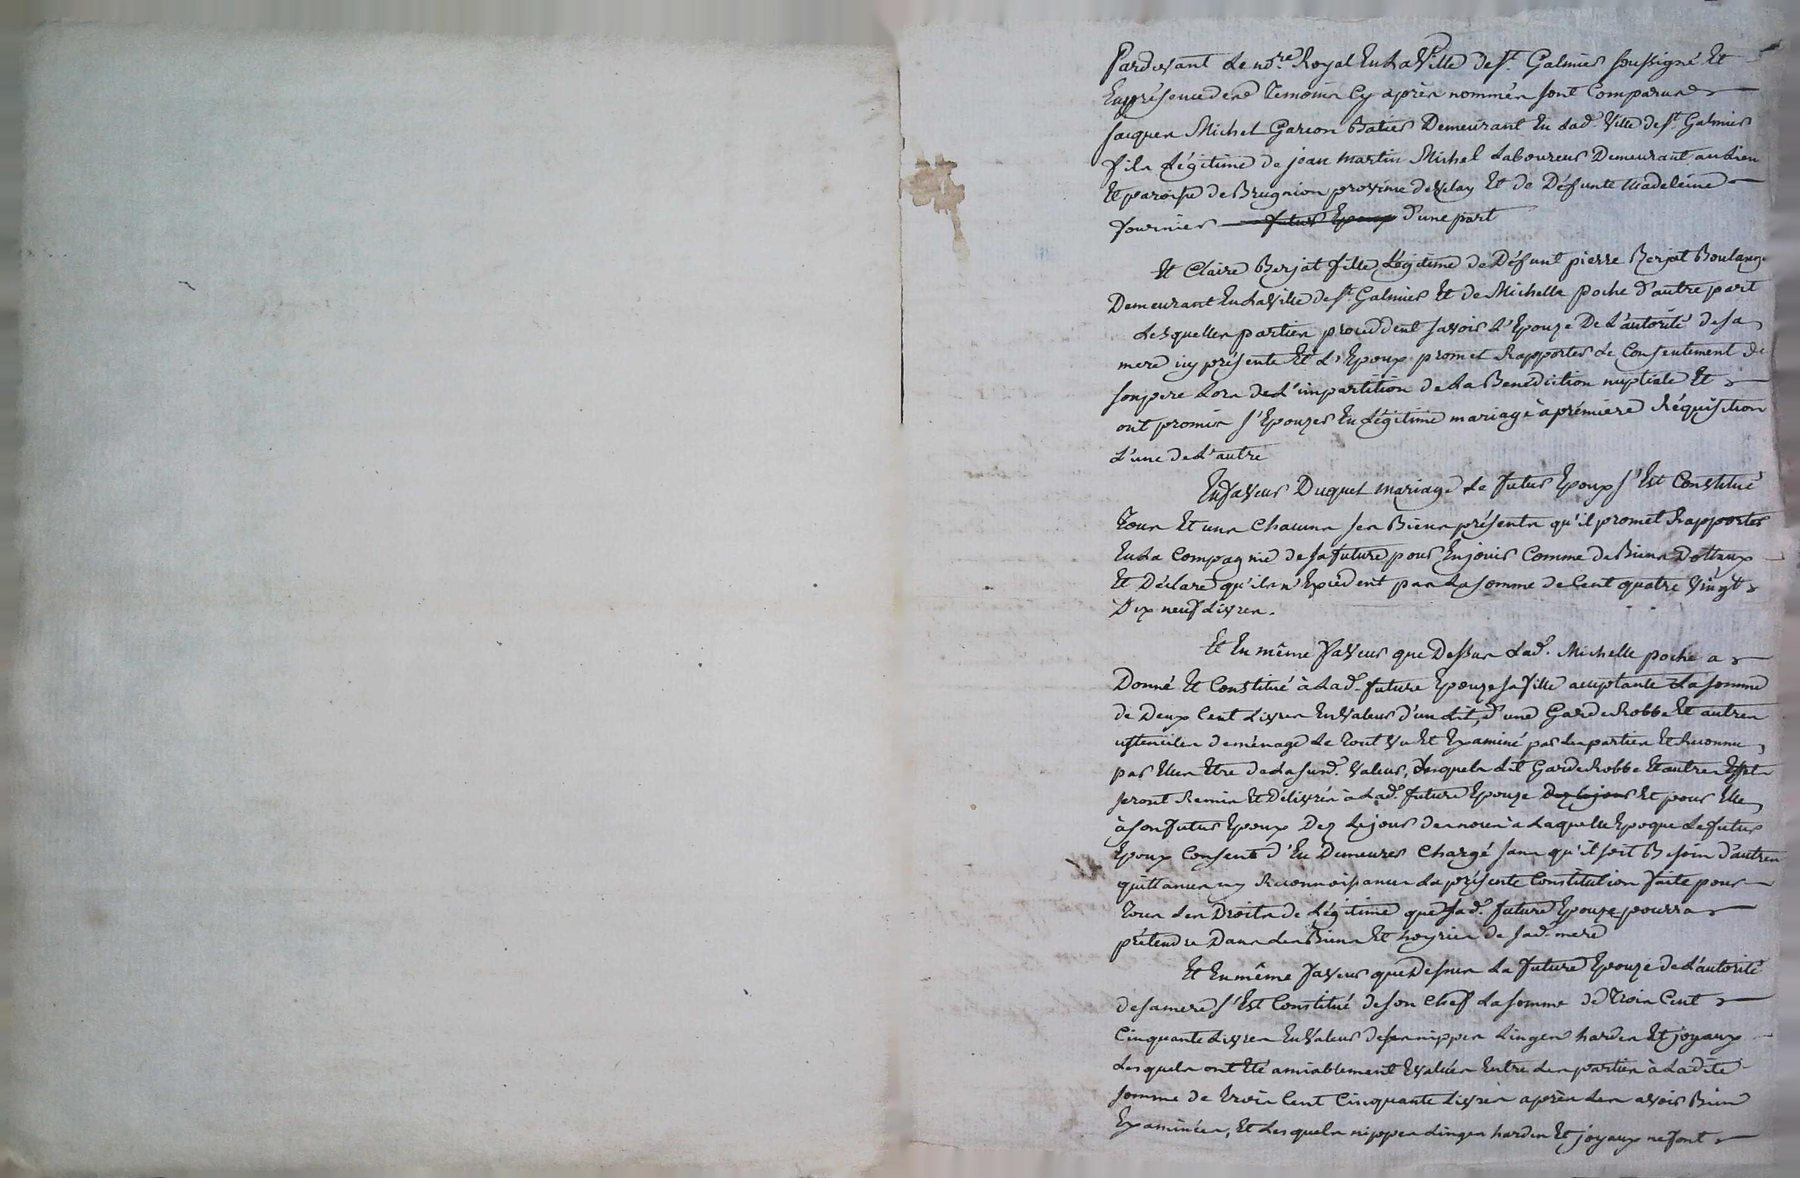 Pardevant Le no.re Royal En La Ville de St. Galmier soussigné Et
En présence des Temoins Cy après nommés sont Comparus
Jacques Michel Garçon Batier Demeurant En Lad. Ville de St. Galmier
fils Légitime de jean martin Michel Laboureur Demeurant au Lieu
Et paroisse de Brugnion province de velay Et de Défunte Madeleine
fournier futur Epoux d'une part
Et Claire Berjat fille Légitime de Défunt pierre Berjat Boulanger
Demeurant En La Ville de St. Galmier Et de Michelle poche d'autre part
Lesquelles parties procedent savoir L'Epouze De L'autorité de sa
mere icy présente Et L'Epoux promet Rapporter Le Consentement de
son pere Lors de L'impartition de La Benediction nuptiale Et
ont promis s'Epouzer En Légitime mariage à prémiere Réquisition
L'une de L'autre
En faveur Duquel mariage Le futur Epoux s'Est Constitué
Tous Et uns Chacuns ses Biens présents qu'il promet Rapporter
En La Compagnie de sa future pour En jouir Comme de Biens Dottaux
Et Déclare qu'ils n'Excédent pas La somme de Cent quatre Vingt
Dix neuf Livres.
Et En même faveur que Dessus Lad. Michelle poche a
Donné Et Constitué à Lad. future Epouze sa fille acceptante La somme
de Deux Cent Livres En Valeur d'un Lit, d'une Garde Robbe Et autres
ustenciles de ménage Le Tout Vu Et Examiné par Les parties Et Reconnu
par Elles Etre de La susd. Valeur, Lesquels Lit Garde Robbe Et autres Effets
seront Remis Et Délivrés à Lad. future Epouze Dez Le jour Et pour Elle
à son futur Epoux Dez Le jour des noces à Laquelle Epoque Le futur
Epoux Consent d'En Demeurer Chargé sans qu'il soit Besoin d'autres
quittances ny Reconnoissances La présente Constitution faite pour
Tous Les Droits de Légitime que Lad. future Epouze pourra
prétendre Dans Les Biens Et hoyries de sad. mere
Et En même faveur que Dessus La future Epouze de L'autorité
de sa mere s'Est Constitué de son Chef La somme de Trois Cent
Cinquante Livres En Valeur de ses nippes Linges hardes Et joyaux
Lesquels ont Eté amiablement Evalués Entre Les parties à La dite
somme de Trois Cent Cinquante Livres après Les avoir Bien
Examinées, Et Lesquels nippes Linges hardes Et joyaux ne font